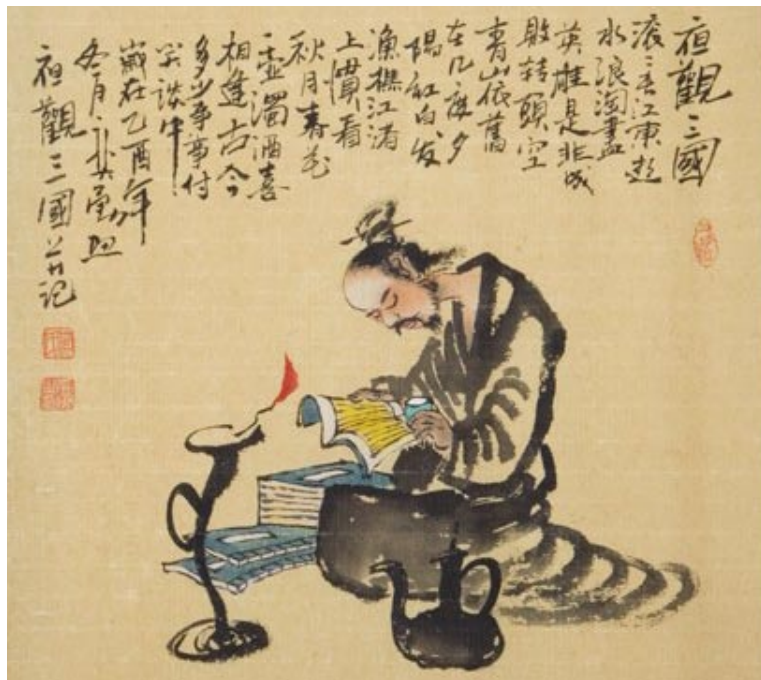 夜觀三國
滚〻长江東逝
水浪淘盡
英雄是非成
敗转頭空
青山依舊
在几度夕
陽红白发
漁樵江渚
上慣看
秋月春
一壶濁酒喜
相逢古今
多少事事付
笑談中
嵗在乙酉年
冬月
夜觀三國并记